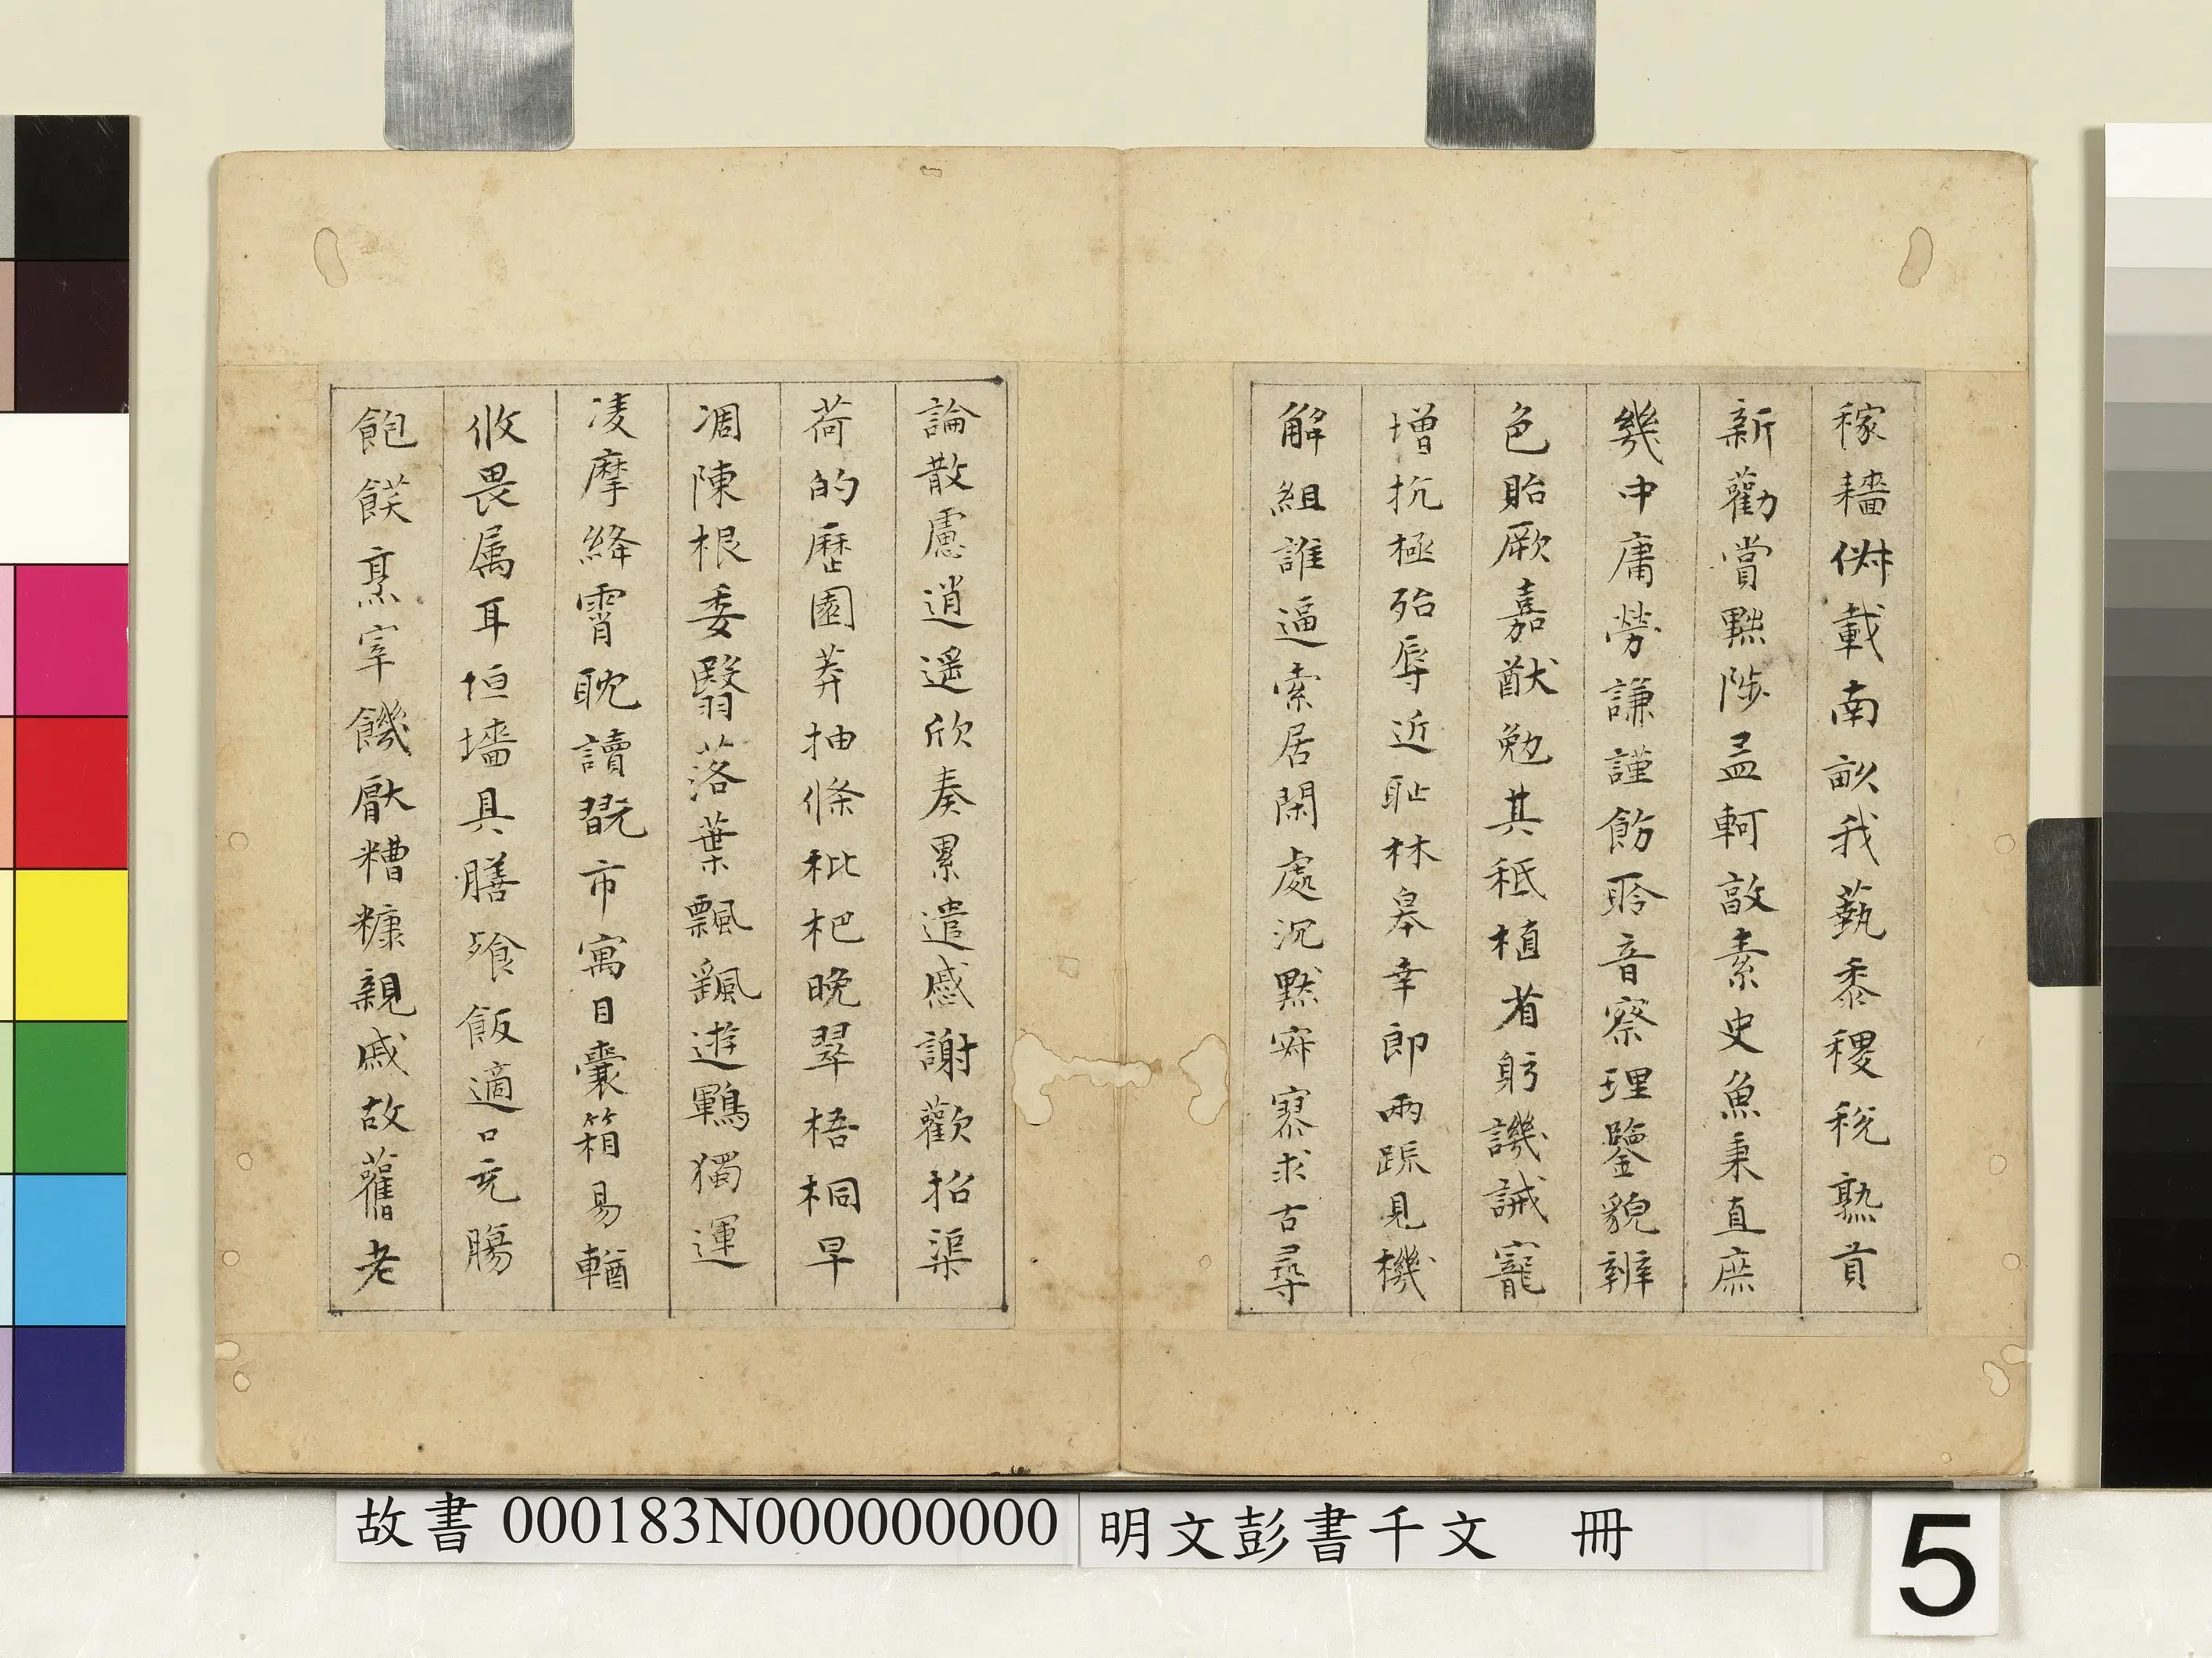 稼穡俶載南畝我蓺黍稷稅熟貢
新勸賞黜陟孟軻敦素史魚秉直庶
幾中庸勞謙謹飭聆音察理鑒貌辨
色貽厥嘉猷勉其祗植省躬譏誡寵
增抗極殆辱近恥林皋幸即兩疏見機
解組誰逼索居閑處沉默寂寥求古尋
論散慮逍遙欣奏累遣慼謝歡招渠
荷的歷園莽抽條枇杷晚翠梧桐早
凋陳根委翳落葉飄颻遊鵾獨運
凌摩絳霄耽讀翫市寓目囊箱易輶
攸畏属耳垣墻具膳飱飯適口充腸
飽飫烹宰饑厭糟糠親戚故舊老
故書 000183N000000000
明文彭書千文 冊
5